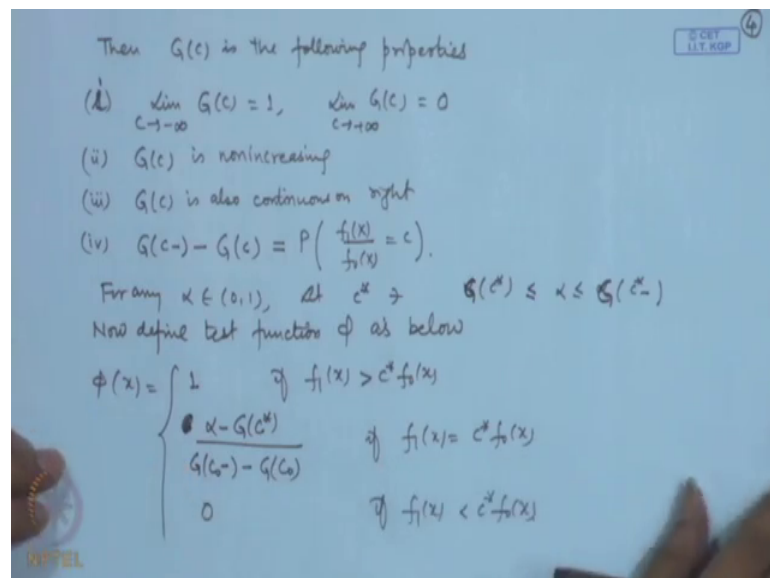 ④
© CET
I.I.T. KGP
Then G(c) is the following properties
(i) Lim G(c) = 1, Lim G(c) = 0
c→-∞ c→+∞
(ii) G(c) is nonincreasing
(iii) G(c) is also continuous on right
(iv) G(c-) - G(c) = P( f₁(X)/f₀(X) = c ).
For any α ∈ (0,1), ∃ c* ∋ G(c*) ≤ α ≤ G(c*-)
Now define test function ϕ as below
ϕ(x) = { 1 if f₁(x) > c* f₀(x)
α - G(c*) / G(c₀-) - G(c₀) if f₁(x) = c* f₀(x)
0 if f₁(x) < c* f₀(x)
NPTEL